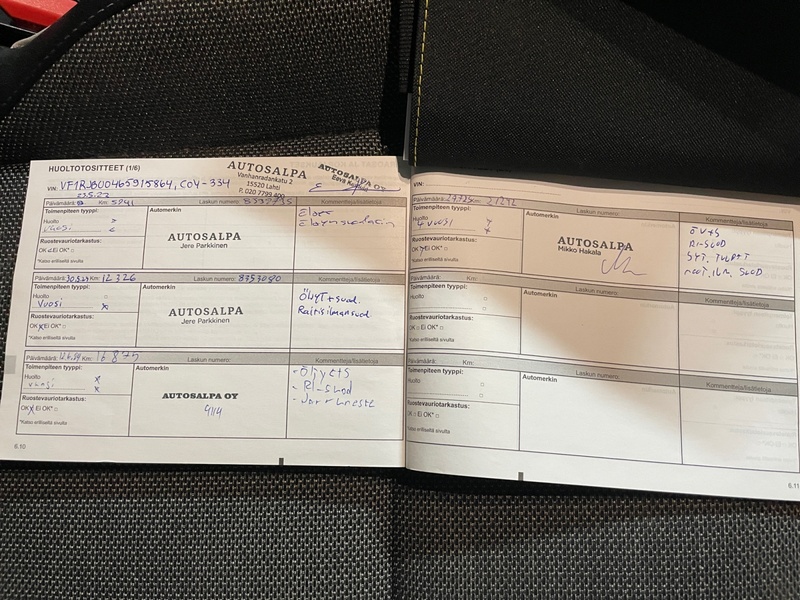 HUOLTOTOSITTEET (1/6)
AUTOSALPA
Vanhanradankatu 2
15520 Lahti
P. 020 7799 400
AUTOSALPA OY
VIN: VF1RJB00465915864, COY-334
Päivämäärä: 23.5.22 Km: 5941 Laskun numero:
Toimenpiteen tyyppi: Automerkin Kommenteja/lisätietoja
Huolto
Vuosi
AUTOSALPA
Jere Parkkinen
Ruostevauriotarkastus:
OK □ Ei OK* □
*Katso erilliseltä sivulta
Päivämäärä: 30.5.23 Km: 12 326 Laskun numero: 8353080
Toimenpiteen tyyppi: Automerkin Kommenteja/lisätietoja
Huolto □
Vuosi x
AUTOSALPA
Jere Parkkinen
Öljyt + suod.
Raitisilmansuod.
Ruostevauriotarkastus:
OK x Ei OK* □
*Katso erilliseltä sivulta
Päivämäärä: Km: 16 875 Laskun numero:
Toimenpiteen tyyppi: Automerkin Kommenteja/lisätietoja
Huolto x
Vuosi x
AUTOSALPA OY
- Öljyt+S
- RI-suod
- Jarruneste
Ruostevauriotarkastus:
OK x Ei OK* □
*Katso erilliseltä sivulta
6.10
VIN:
Päivämäärä: Km: 21212 Laskun numero:
Toimenpiteen tyyppi: Automerkin Kommenteja/lisätietoja
Huolto
4 vuosi
AUTOSALPA
Mikko Hakala
ÖV+S
RI-SUOD
SYT. TULPAT
MOOT. ILM. SUOD
Ruostevauriotarkastus:
OK x Ei OK* □
*Katso erilliseltä sivulta
Päivämäärä: Km: Laskun numero:
Toimenpiteen tyyppi: Automerkin Kommenteja/lisätietoja
Huolto □
Ruostevauriotarkastus:
OK □ Ei OK* □
*Katso erilliseltä sivulta
Päivämäärä: Km: Laskun numero:
Toimenpiteen tyyppi: Automerkin Kommenteja/lisätietoja
Huolto □
Ruostevauriotarkastus:
OK □ Ei OK* □
*Katso erilliseltä sivulta
6.11